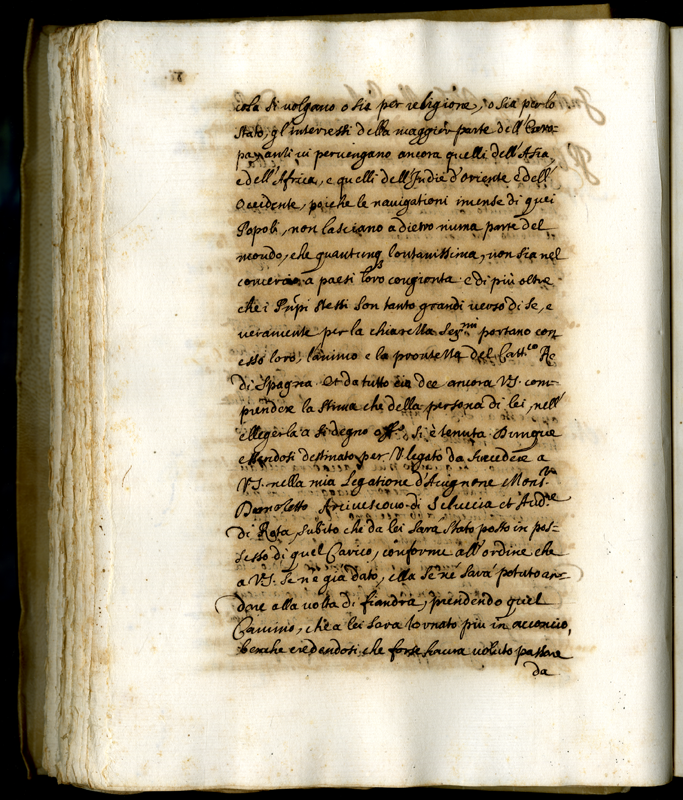 cola si volgano o sia per religione, o sia per lo
stato, gl'interressi della maggior parte dell'Euro-
pa, anzi vi pervengano ancora quelli dell'Asia,
e dell'Africa, e quelli dell'Indie d'oriente e dell'
Occidente, poiche le navigationi imense di quei
Popoli, non lasciano adietro niuna parte del
mondo, che quantunq lontanissima, non sia nel
a paesi loro congionta. e di più oltre
che i Prñpi stessi son tanto grandi verso di se, e
veramente per la chiarezza Ser.ma portano con
esso loro, l'animo e la prontezza del Catt.co Re
di Spagna. Et da tutto ciò dee ancora V.S. com-
prendere la stima che della persona di lei, nell'
ellegerla a si degno off.o si è tenuta. Dunque
essendosi destinato per V. legato da succedere a
V.S. nella mia Legatione d'Avignone Mons.r
Arcivescovo di Seleucia et Aud.re
di Rota, subito che da lei sarà stato posto in pos-
sesso di quel Carico, conforme all'ordine che
a V.S. se n'è già dato, ella se ne sarà potuto an-
dare alla volta di fiandra, prendendo quel
Camino, che a lei sarà tornato più in acconcio,
benche credendosi che forse havrà voluto passare
da